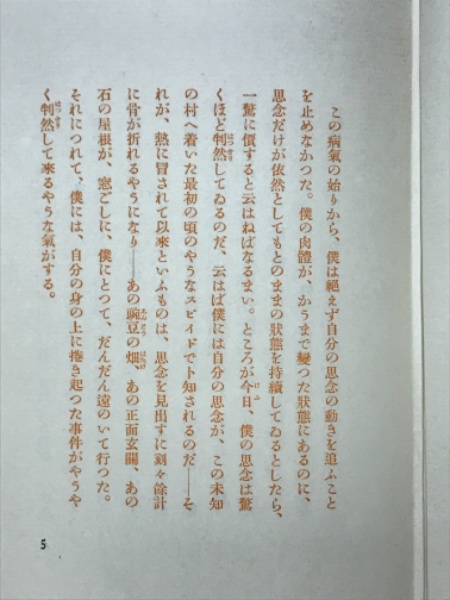 この病氣の始りから、僕は絕えず自分の思念の動きを追ふこと
を止めなかつた。僕の肉體が、かうまで變つた狀態にあるのに、
思念だけが依然としてもとのままの狀態を持續してゐるとしたら、
一驚に價すると云はねばなるまい。ところが今日、僕の思念は驚
くほど判然してゐるのだ、云はば僕には自分の思念が、この未知
の村へ着いた最初の頃のやうなスピイドで卜知されるのだ――そ
れが、熱に冒されて以來といふものは、思念を見出すに刻々餘計
に骨が折れるやうになり――あの豌豆の畑、あの正面玄關、あの
石の屋根が、窓ごしに、僕にとつて、だんだん遠のいて行つた。
それにつれて、僕には、自分の身の上に捲き起つた事件がやうや
く判然して來るやうな氣がする。
5